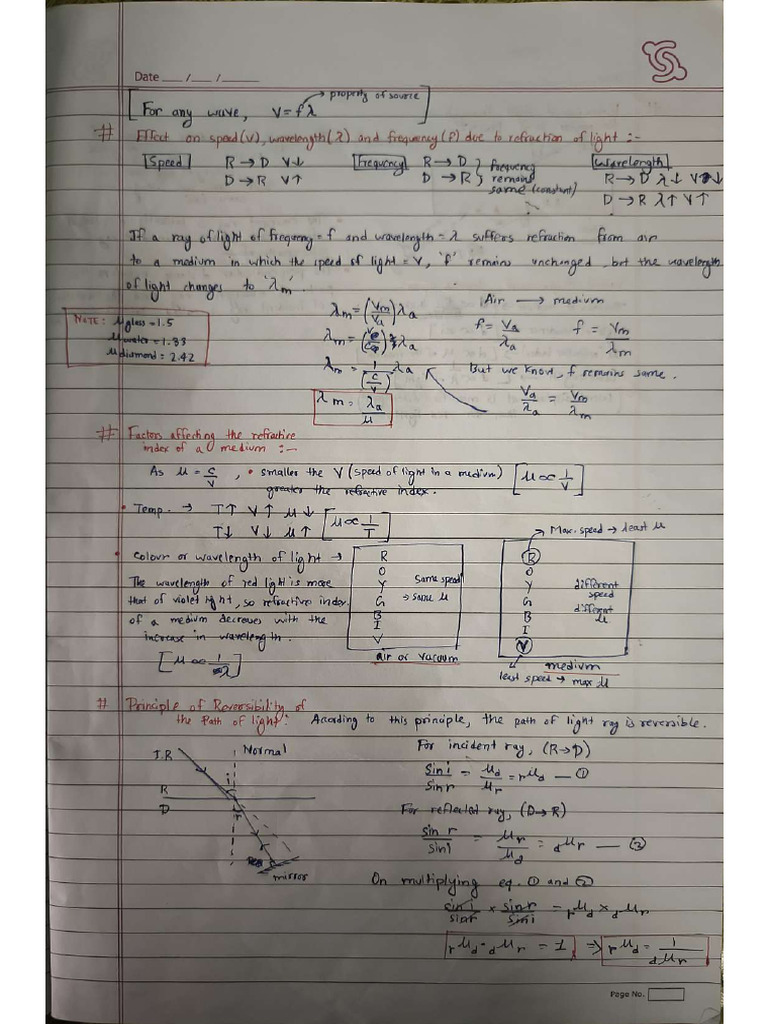 Date ___/___/_____
[For any wave, v = fλ → property of source]
# Effect on speed(v), wavelength(λ) and frequency(f) due to refraction of light :-
Speed R → D V↓ Frequency R → D } frequency Wavelength
D → R V↑ D → R } remains R → D λ↓ V↓
same (constant) D → R λ↑ V↑
If a ray of light of frequency = f and wavelength = λ suffers refraction from air
to a medium in which the speed of light = V, 'f' remains unchanged, but the wavelength
of light changes to 'λm'.
NOTE: μglass = 1.5
μwater = 1.33
μdiamond = 2.42
λm = (Vm/Va) λa
λm = λa
λm = 1/(c/v) λa
λm = λa/μ
Air → medium
f = Va/λa f = Vm/λm
But we know, f remains same.
Va/λa = Vm/λm
# Factors affecting the refractive
index of a medium :-
As μ = c/v, • smaller the V (speed of light in a medium) [μ ∝ 1/V]
greater the refractive index.
• Temp. → T↑ V↑ μ↓ [μ ∝ 1/T]
T↓ V↓ μ↑
• Colour or wavelength of light →
The wavelength of red light is more
that of violet light, so refractive index
of a medium decreases with the
increase in wavelength.
[μ ∝ 1/λ]
R
O
Y
G
B
I
V
Same speed
⇒ same μ
air or vacuum
Max. speed → least μ
R
O
Y
G
B
I
V
different
speed
different
μ
medium
least speed → max μ
# Principle of Reversibility of
the Path of light: Acording to this principle, the path of light ray is reversible.
I.R
Normal
i
R
D
r
mirror
For incident ray, (R→D)
Sin i/Sin r = μd/μr = rμd — ①
For reflected ray, (D→R)
sin r/sin i = μr/μd = dμr — ②
On multiplying eq. ① and ②
sin i/sin r × sin r/sin i = rμd × dμr
rμd · dμr = 1 ⇒ rμd = 1/dμr
Page No.